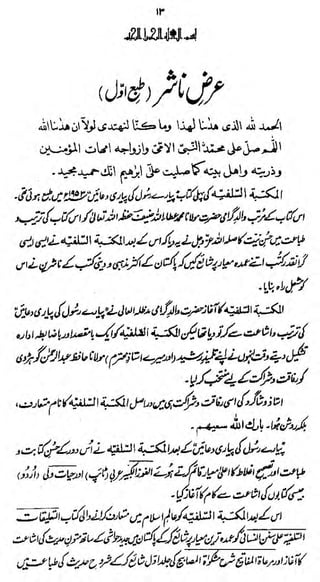 ۱۳
عرضِ ناشر (طبع اوّل)
الحمد لله الذی هدٰنا لهذا وما كنّا لنهتدی لولا ان هدٰنا الله
اللّٰهم صلّ علی محمّد النبیّ الامّی وازواجه امهات المؤمنین
وذریته واهل بیته كما صلیت علیٰ ابراهیم انك حمید مجید۔
المکتبۃ السّلفیّۃ کی پہلی کتاب پیارے رسول کی پیاری دعائیں ۱۹۵۳ء میں طبع ہوئی تھی۔
اس کتاب کے مرتب والدِ گرامی حضرت مولانا محمد عطاء اللہ حنیف حفظہ اللہ تعالیٰ کو اس کتاب کی ترتیب و
طباعت میں حُسنِ نیت کا صلہ اللہ عزّ وجل نے یہ دیا کہ اس کے بعد المکتبۃ السّلفیّۃ نے ایسی ایسی
گرانقدر کتب اتنے عمدہ معیار پر شائع کیں کہ پاکستان کے اکثر مذہبی و دینی کتب کے ناشرین نے اس
کو مشعلِ راہ بنایا۔
المکتبۃ السّلفیّۃ کا آغاز حضرت والدِ گرامی مدظلہ العالی نے پیارے رسول کی پیاری دعائیں
کی ترتیب و اشاعت سے کر تو دیا تھا لیکن المکتبۃ السّلفیّۃ کو ایک بامقصد اور باضابطہ ادارہ
تشکیل دیتے وقت اُنہوں نے اپنے تلمیذِ رشید (اور میرے استاذِ محترم) مولانا حافظ عبدالرحمٰن گوہڑوی
کو رفاقت و شراکت کے لیے منتخب کر لیا۔
استاذ و شاگرد کی اسی رفاقت و شراکت ہی میں دراصل المکتبۃ السّلفیّۃ کا نام متعارف،
بلکہ روشن ہُوا۔ بارك اللّٰه سعیهم۔
پیارے رسول کی پیاری دعائیں کے بعد المکتبۃ السّلفیّۃ نے اُس دور کے حُسنِ کتابت و
طباعت اور تصحیح اغلاط کا اعلیٰ معیار قائم کرتے ہوئے الفوز الکبیر عربی (ٹائپ) اور حیاتِ ولی (اُردو)
جیسی کتابوں کی اشاعت سے کام کا آغاز کیا۔
اس کے بعد المکتبۃ السّلفیّۃ کو عالمِ اسلام میں متعارف کرانے والی کتاب التعلیقات
السّلفیّۃ علیٰ سنن النسائی کو عمدہ ترین معیار پر شائع کر کے پاکستان میں جدید حواشی کے ساتھ متونِ حدیث کی اشاعت
کا آغاز اور مرعاۃ المفاتیح شرح مشکوٰۃ المصابیح کی جلد اوّل شائع کر کے شروحِ حدیث کی طباعت میں